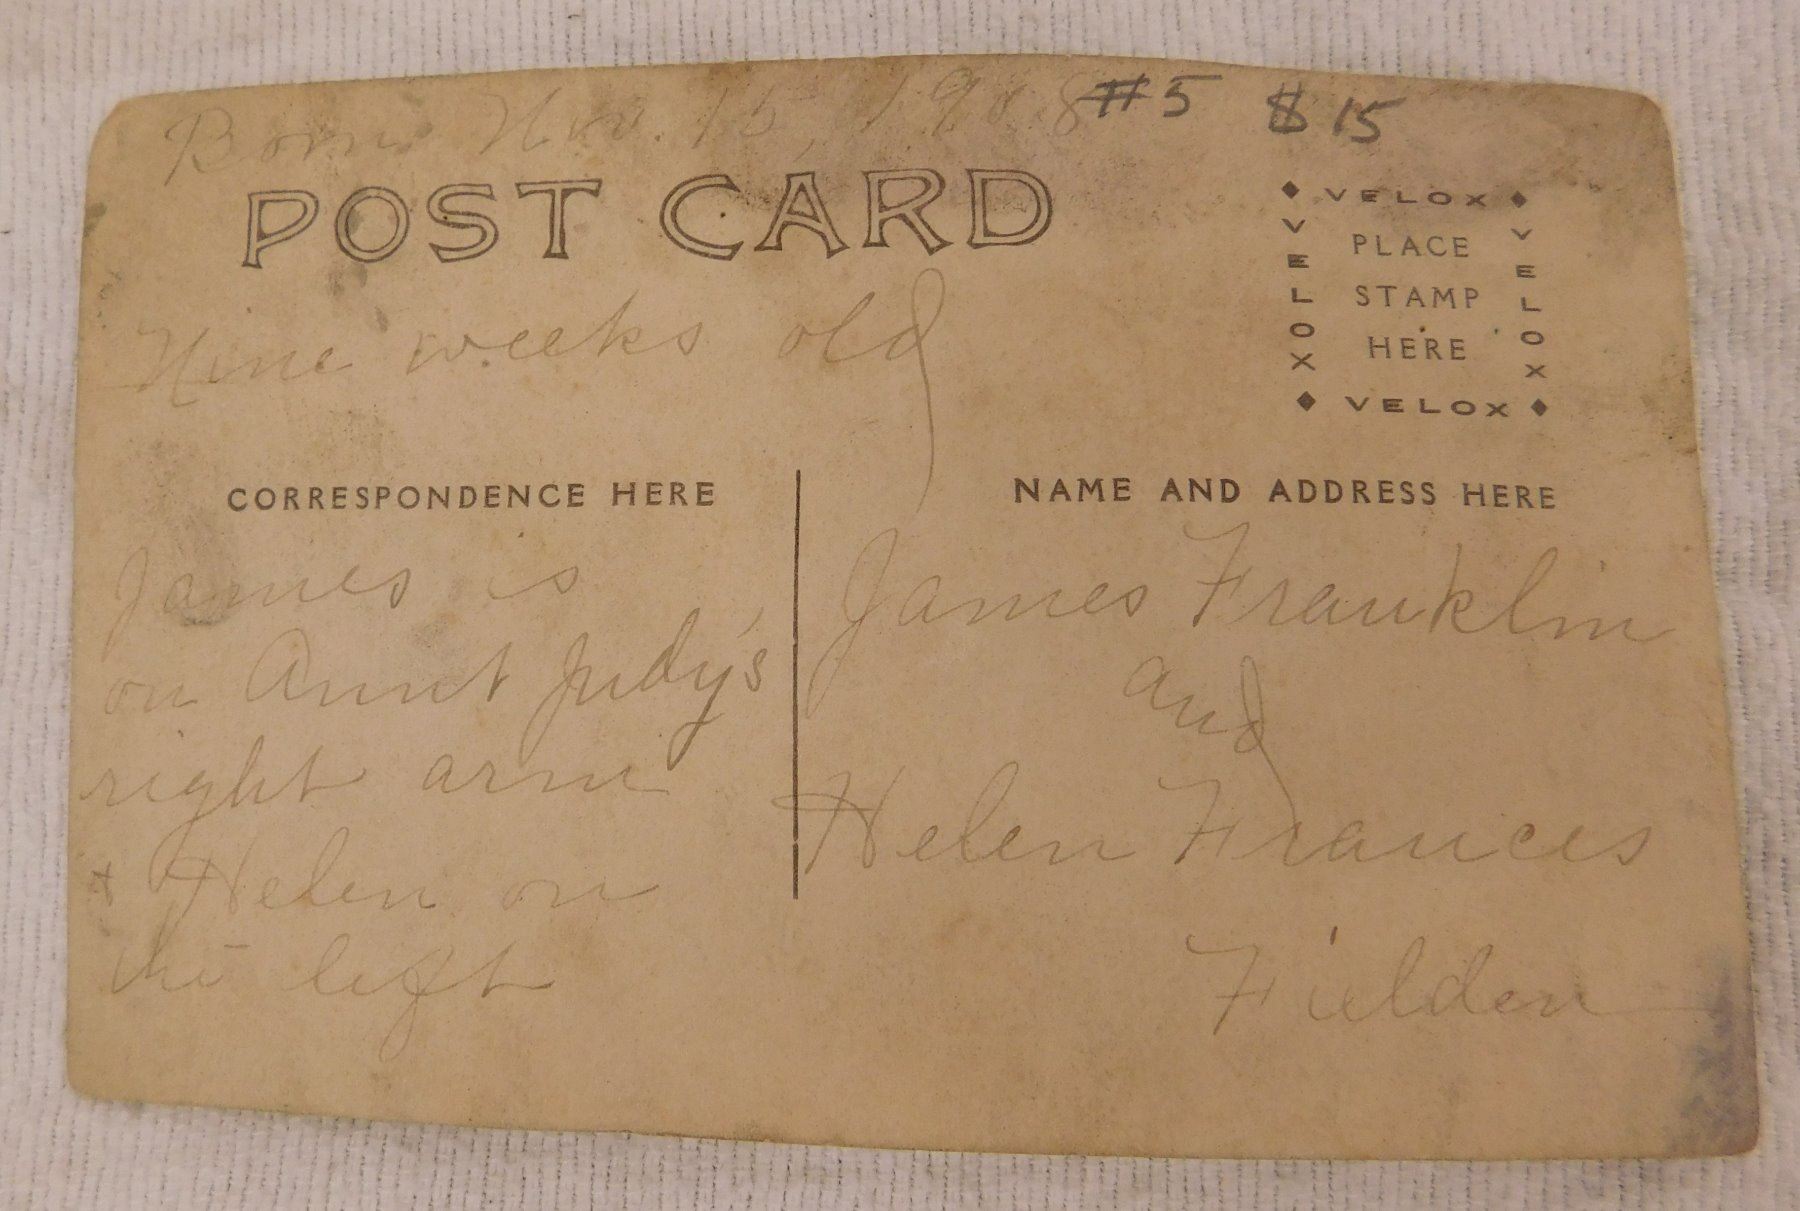 Born Nov. 15, 1908 #5 $15
POST CARD
VELOX
VELOX
PLACE
STAMP
HERE
VELOX
VELOX
Nine weeks old
CORRESPONDENCE HERE
NAME AND ADDRESS HERE
James is
on Aunt Judy's
right arm
+ Helen on
the left
James Franklin
and
Helen Frances
Fielden